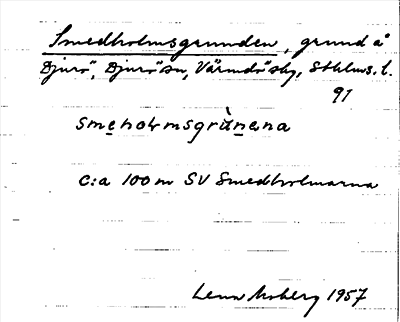 Smedholmsgrunden, grund å
Djurö, Djurö sn, Värmdö sky, Sthlms. l.
91
smeholmsgrùnena
c:a 100 m SV Smedholmarna
Lena Moberg 1957